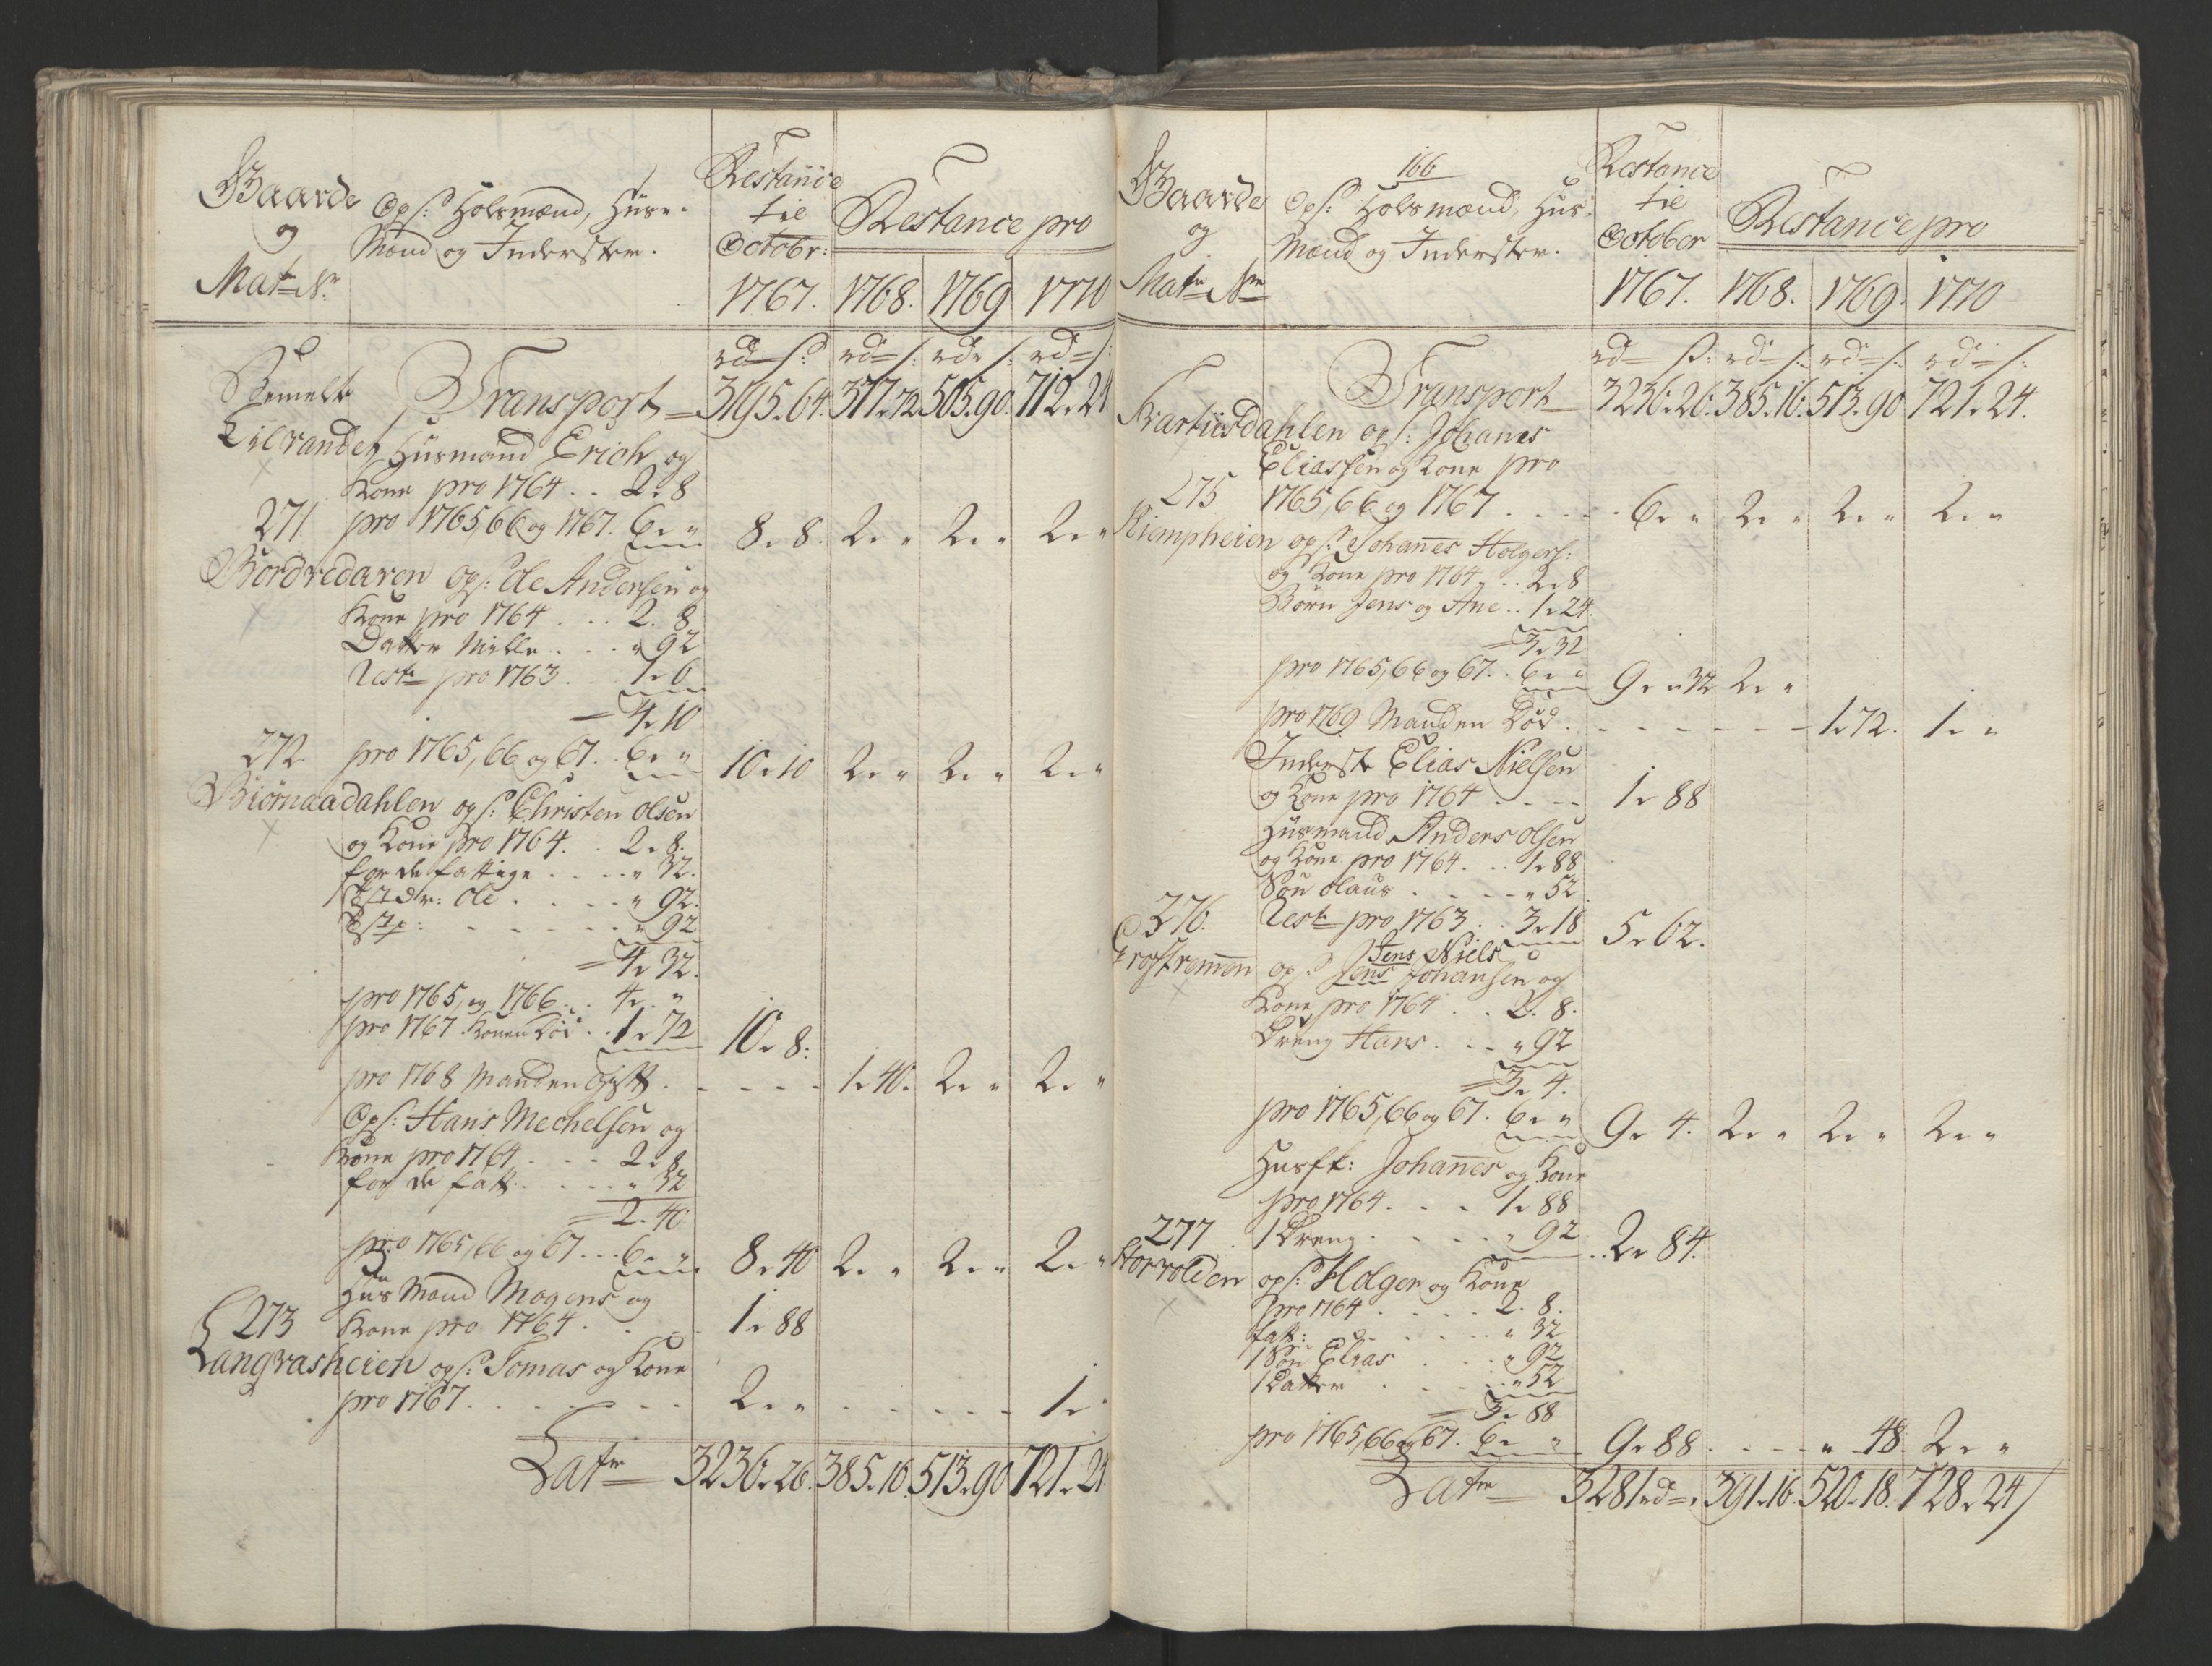 Gaarde
og
Mat= N:
Ops: Holsmænd, Huse-
Mænd og Inderster.
Restance
til
Octobr:
1767.
Restance pro
1768. 1769 1770
rd= s: rd= s: rd= s: rd= s:
Transport = 3195.64. 377.72. 505.90. 712.24
Husmand Erich og
Kone pro 1764 . . 2. 8
271. pro 1765, 66 og 1767. 6. " 8. 8. 2. " 2. " 2. "
Nordredaren ops: Ole Andersen og
Kone pro 1764 . . . 2. 8
Datter Mille . . . " 92
Rest= pro 1763 . . 1. 6
= 4. 10
272. pro 1765, 66 og 67. . 6. " 10. 10 2. " 2. " 2. "
Biørnaadahlen ops: Christen Olsen
og Kone pro 1764 . . 2. 8.
for de fattige . . . . " 32.
Ole . . . . " 92.
. . . . . . " 92
= 4. 32.
pro 1765, og 1766 . . 4. "
pro 1767. Konen Død . . 1. 72 10. 8.
pro 1768 Manden Gift . . . . . 1. 40. 2. " 2. "
Ops: Hans Mechelsen og
Kone pro 1764 . . . 2. 8
for de fatt: . . . . " 32
= 2. 40
pro 1765, 66 og 67 . . . 6. " 8. 40 2. " 2. " 2. "
Hus Mand Mogens og
273 Kone pro 1764 . . . . 1. 88
Langrasheien ops: Tomas og Kone
pro 1767 . . . . . . . 2. " . . . . . . 1.
Lat= 3236. 26. 385. 16. 513. 90 721. 24
Gaarde
og
Mat= N=
166
Ops: Holsmænd, Hus-
Mænd og Inderster.
Restance
til
October
1767.
Restance pro
1768. 1769. 1770
rd= s: rd= s: rd= s: rd= s:
Transport 3236. 26. 385. 16. 513. 90 721. 24.
ops: Johanes
Eliassen og Kone pro
275 1765, 66 og 1767 . . . . . 6. " 2. " 2. " 2. "
Kiempheien ops: Johanes Holgers:
og Kone pro 1764. . . 2. 8
Børn Jens og Ane . . 1. 24.
= 3. 32
pro 1765, 66 og 67. . 6. " 9. " 32 2. "
pro 1769 Manden Død . . . . . . . 1. 72. 1. "
Inderste Elias Nielsen
og Kone pro 1764 . . . . 1. 88
Husmand Anders Olsen
og Kone pro 1764. . . 1. 88
Søn Olaus . . . . . " 52
276. Rest= pro 1763 . . 3. 18 5. 62.
Jens Niels
ops: Jens Johansen og
Kone pro 1764 . . 2. 8.
Dreng Hans . . . " 92
= 3. 4.
pro 1765, 66 og 67. . 6. " 9. 4. 2. " 2. " 2. "
Husft: Johanes og Kone
pro 1764. . . . 1. 88
277 1 Dreng . . . . . " 92 . . 2. 84.
Storvolden ops: Holger og Kone
pro 1764 . . . . . 2. 8.
fatt: . . . . . . " 32
1 Søn Elias . . . . " 92
1 Datter . . . . . " 52
= 3. 88
pro 1765, 66 og 67. 6. " 9. 88 . . . . " 48 2. "
Lat= 3281 rd= . 391. 16. 520. 18. 728. 24